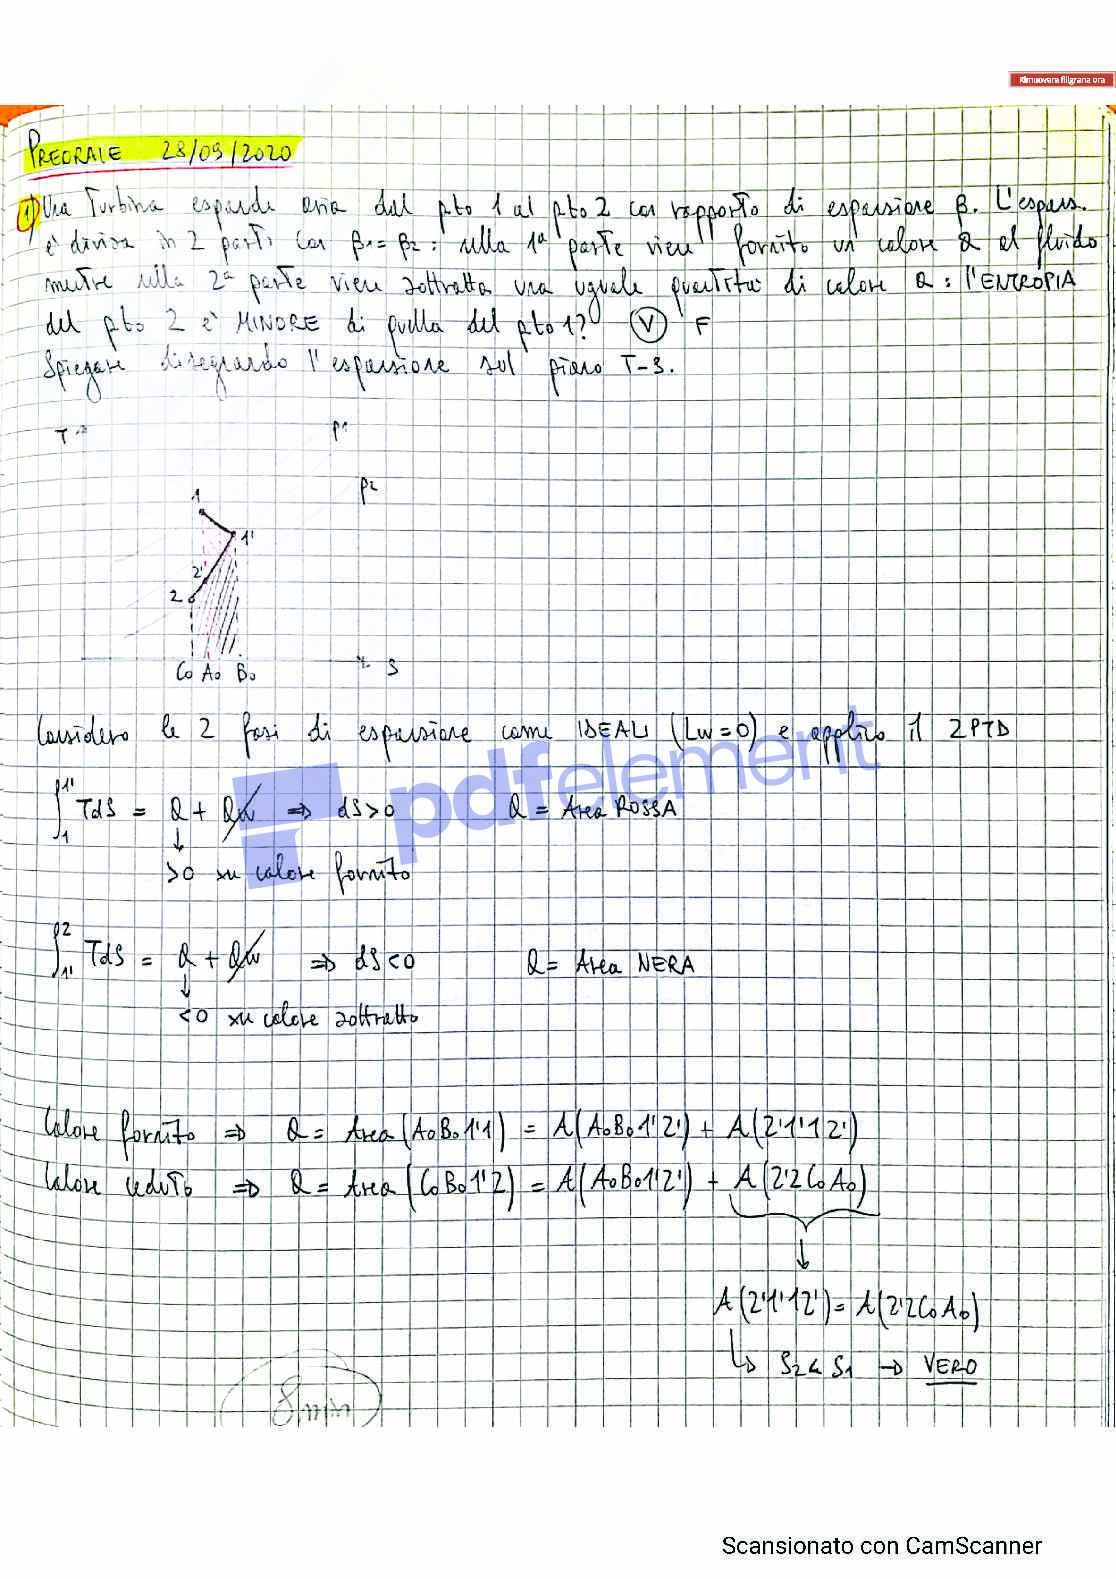 Rimuovere filigrana ora
PREORALE 28/09/2020
1) Una Turbina espande aria dal pto 1 al pto 2 con rapporto di espansione β. L'espans.
è divisa in 2 parti con β1 = β2 : nella 1ª parte viene fornito un calore Q al fluido
mentre nella 2ª parte viene sottratta una uguale quantità di calore Q : l'ENTROPIA
del pto 2 è MINORE di quella del pto 1? V F
Spiegare disegnando l'espansione sul piano T-S.
T P1
P2
1
1'
2'
2
C0 A0 B0 S
Considero le 2 fasi di espansione come IDEALI (Lw=0) e applico il 2PTD
pdfelement
∫₁^1' TdS = Q + Qw ⇒ dS>0 Q = Area ROSSA
↓
>0 xu calore fornito
∫₁'^2 TdS = Q + Qw ⇒ dS<0 Q = Area NERA
↓
<0 xu calore sottratto
Calore fornito ⇒ Q = Area (A0B01'1) = A(A0B01'2') + A(2'1'12')
Calore ceduto ⇒ Q = Area (C0B01'2) = A(A0B01'2') + A(2'2C0A0)
↓
A(2'1'12') = A(2'2C0A0)
↳ S2<S1 → VERO
8 min
Scansionato con CamScanner